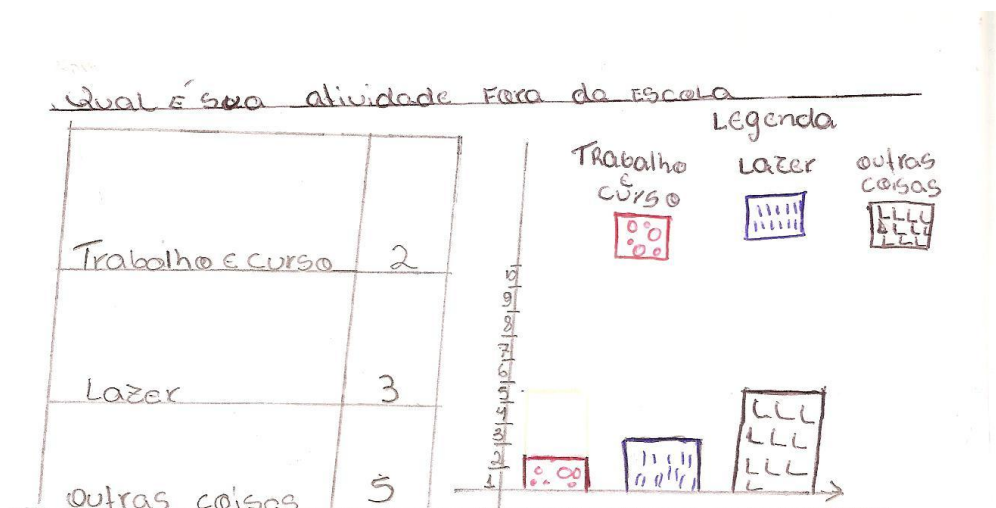 Qual É sua atividade Fora da Escola
Legenda
Trabalho e curso
Lazer
outras coisas
Trabalho e curso 2
Lazer 3
outras coisas 5
10
9
8
7
6
5
4
3
2
1